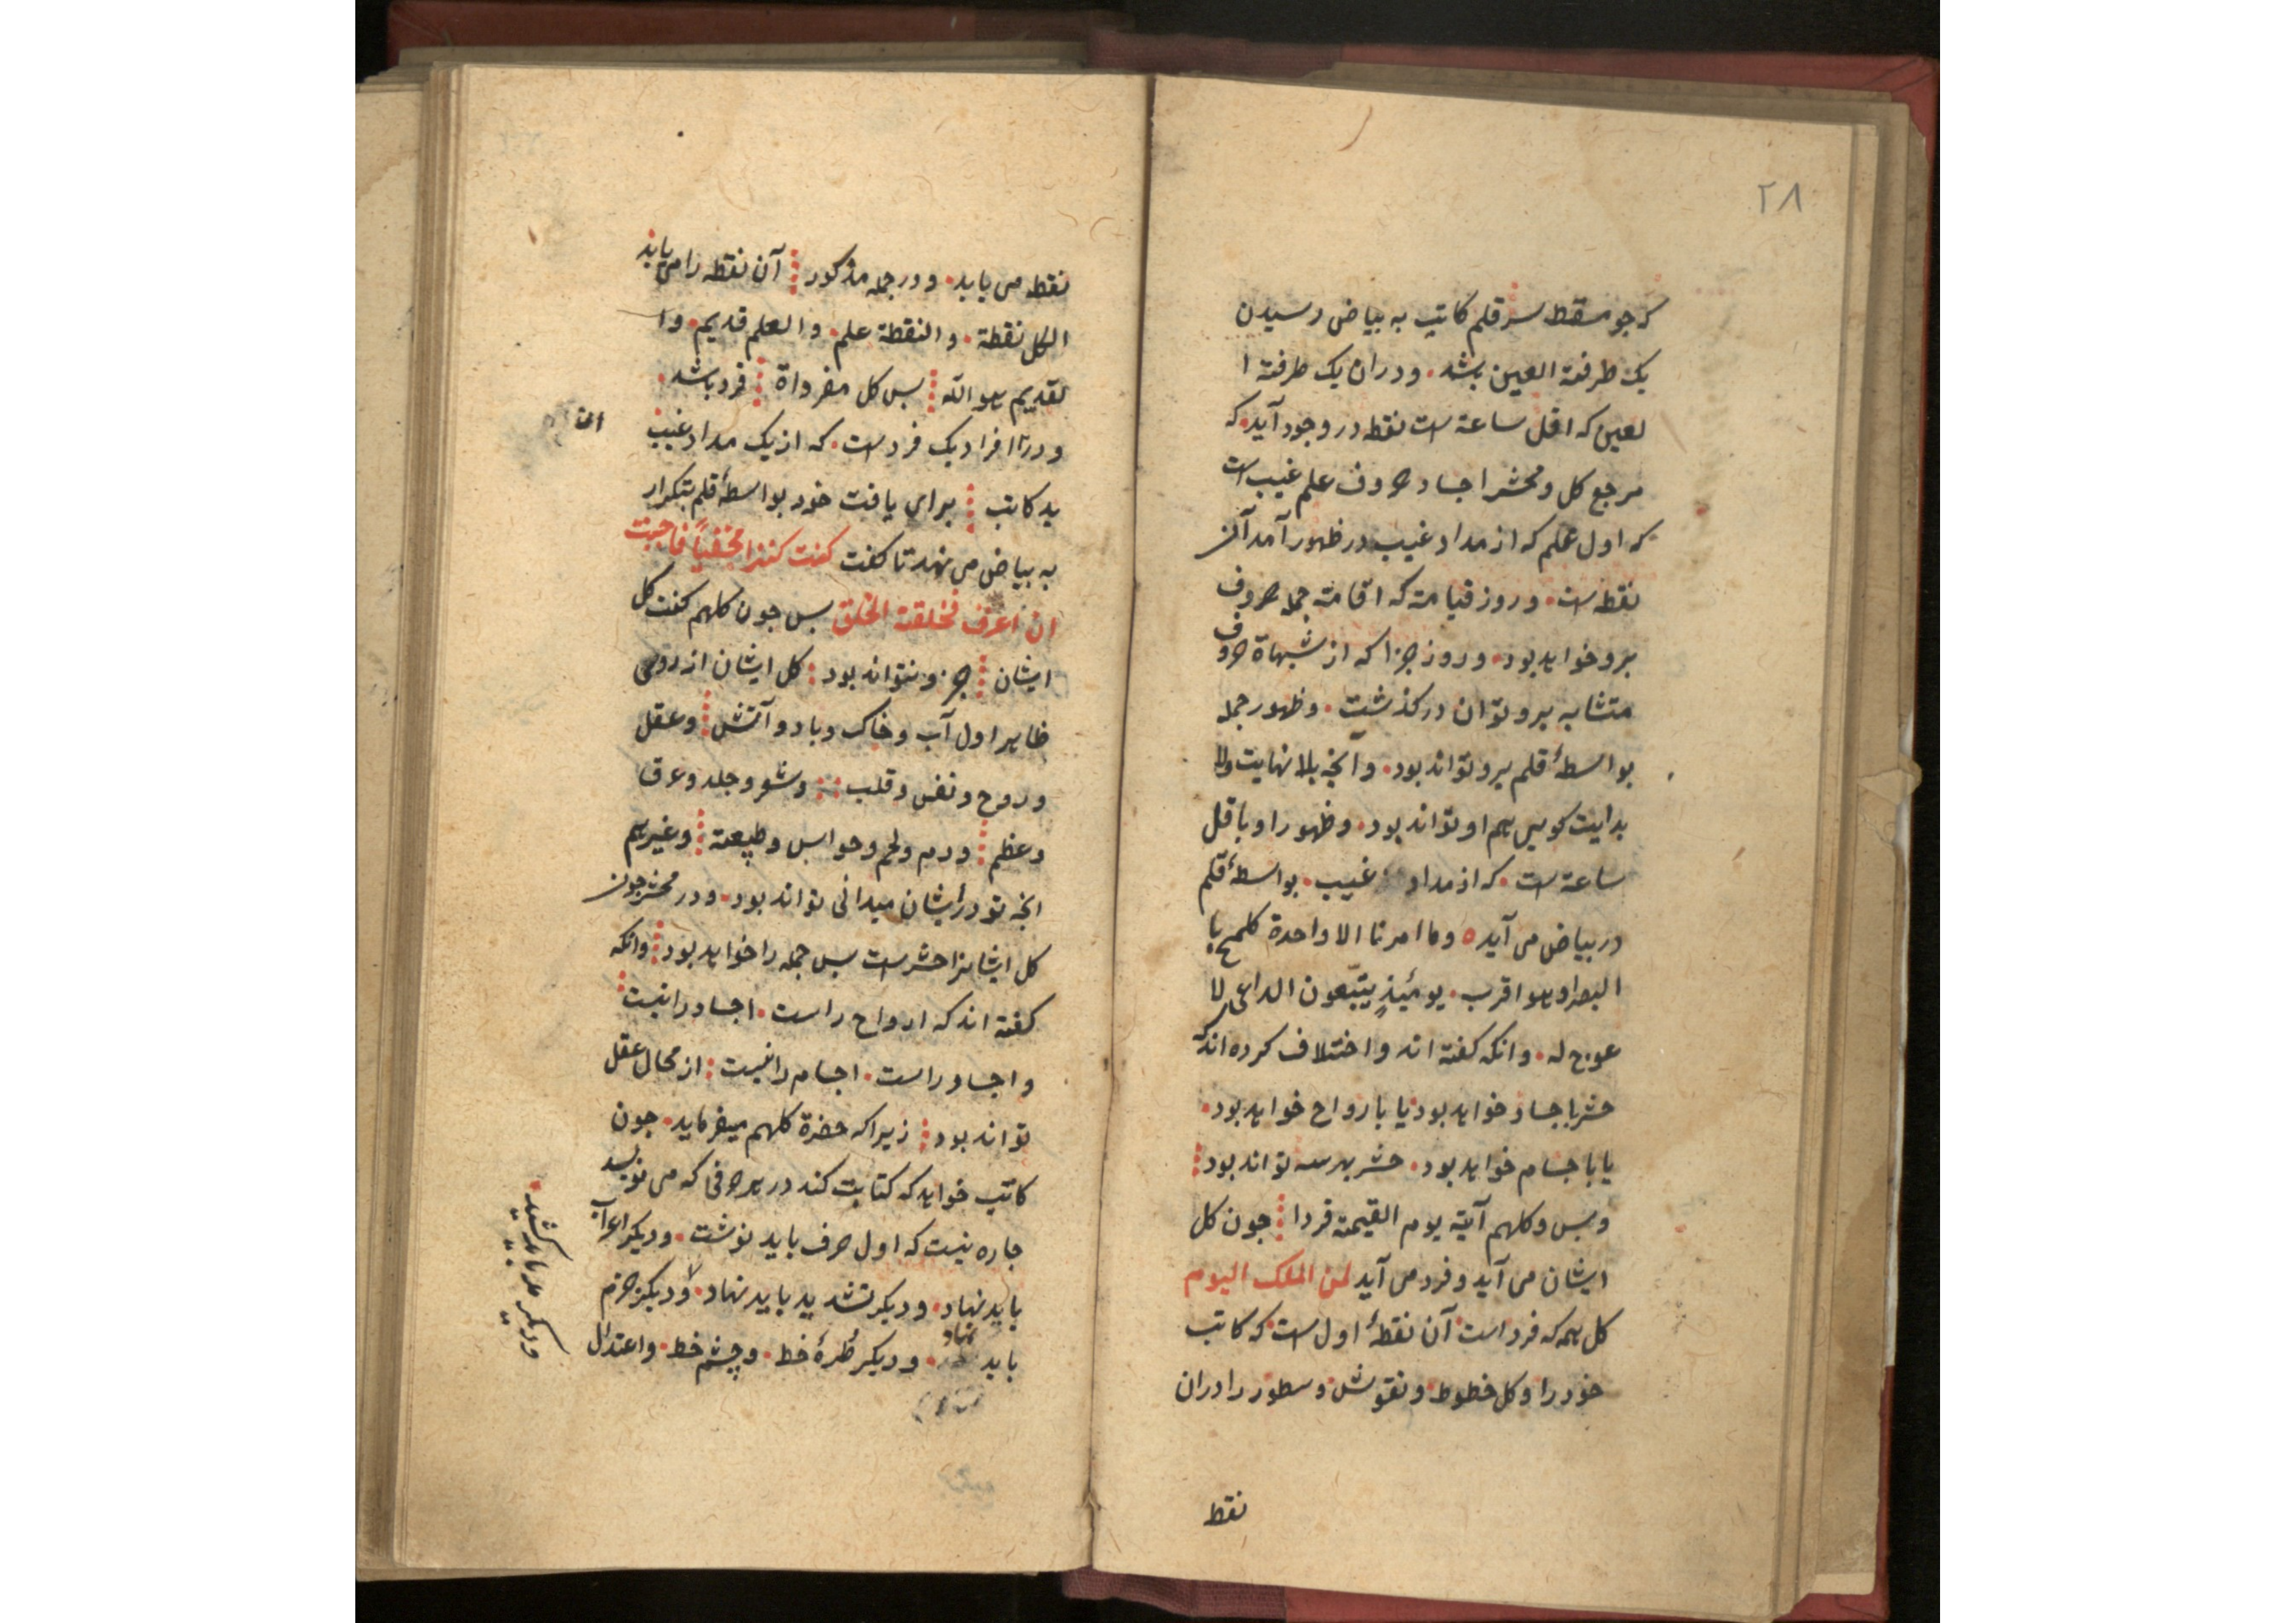 ٢٨
که جو مسقط سر قلم کاتب به بیاض رسیدن
یک طرفة العین بشد ۰ ودران یک طرفة ا
لعین که اقل ساعة ست نقطه در وجود آید ۰ که
مرجع کل و محشر اجساد حروف علم غیب است
که اول علم که از مداد غیب در ظهور آمد آن
نقطه ست ۰ و روز قیامت که اقامت جمله حروف
برو خواهد بود ۰ و روز جزا که از شبهاة حروف
متشابه برو توان در گذشت ۰ و ظهور جمله
بواسطهٔ قلم برو تواند بود ۰ و آنچه بلا نهایت ولا
بدایت کویی هم او تواند بود ۰ و ظهور او باقل
ساعة ست ۰ که از مداد غیب ۰ بواسطهٔ قلم
در بیاض می آید ه وما امرنا الا واحدة کلمح با
لبصر او هو اقرب ۰ یومئذٍ یتبعون الداعی لا
عوج له ۰ وانکه کفته اند و اختلاف کرده اند که
حشر باجساد خواهد بود یا بارواح خواهد بود ۰
یا باجسام خواهد بود ۰ حشر بهر سه تواند بود
و بس وکلهم آتیه یوم القیمة فردا جون کل
ایشان می آید و فرد می آید لمن الملک الیوم
کل همه که فرد است آن نقطهٔ اول ست که کاتب
خود را و کل خطوط و نقوش و سطور را دران
نقط
نقطه می یابد ۰ و در جمله مذکور آن نقطه را می یابد
الکل نقطة ۰ والنقطة علم ۰ والعلم قدیم ۰ وا
لقدیم هو الله بس کل مفرداة فرد باشد ۰
ودرتا افراد یک فرد ست ۰ که از یک مداد غیب
ید کاتب برای یافت خود بواسطهٔ قلم بتکرار
به بیاض می نهد تا کفت کنت کنزا مخفیاً فاحببت
ان اعرف فخلقت الخلق بس جون کلهم کفت کل
ایشان جز و نتواند بود کل ایشان از روی
ظاهر اول آب و خاک و باد و آتش وعقل
وروح و نفس و قلب وشعر و جلد وعرق
وعظم ودم ولحم و حواس و طبیعة وغیرهم
آنچه تو در ایشان میدانی تواند بود ۰ ودر محشر جون
کل ایشانرا حشر ست بس جمله را خواهد بود وانکه
کفته اند که ارواح راست ۰ اجساد را نیست
واجساد راست ۰ اجسام را نیست از محال عقل
تواند بود زیرا که حضرة کلهم میفرماید ۰ جون
کاتب خواهد که کتابت کند در هر حرفی که می نویسد
جاره نیست که اول حرف باید نوشت ۰ ودیکر اعراب
باید نهاد ۰ ودیکر تشدید باید نهاد ۰ ودیکر جزم
باید نهاد ۰ ودیکر طُرهٔ خط ۰ وچشم خط ۰ واعتدال
ودیکر مد باید کشید ۰